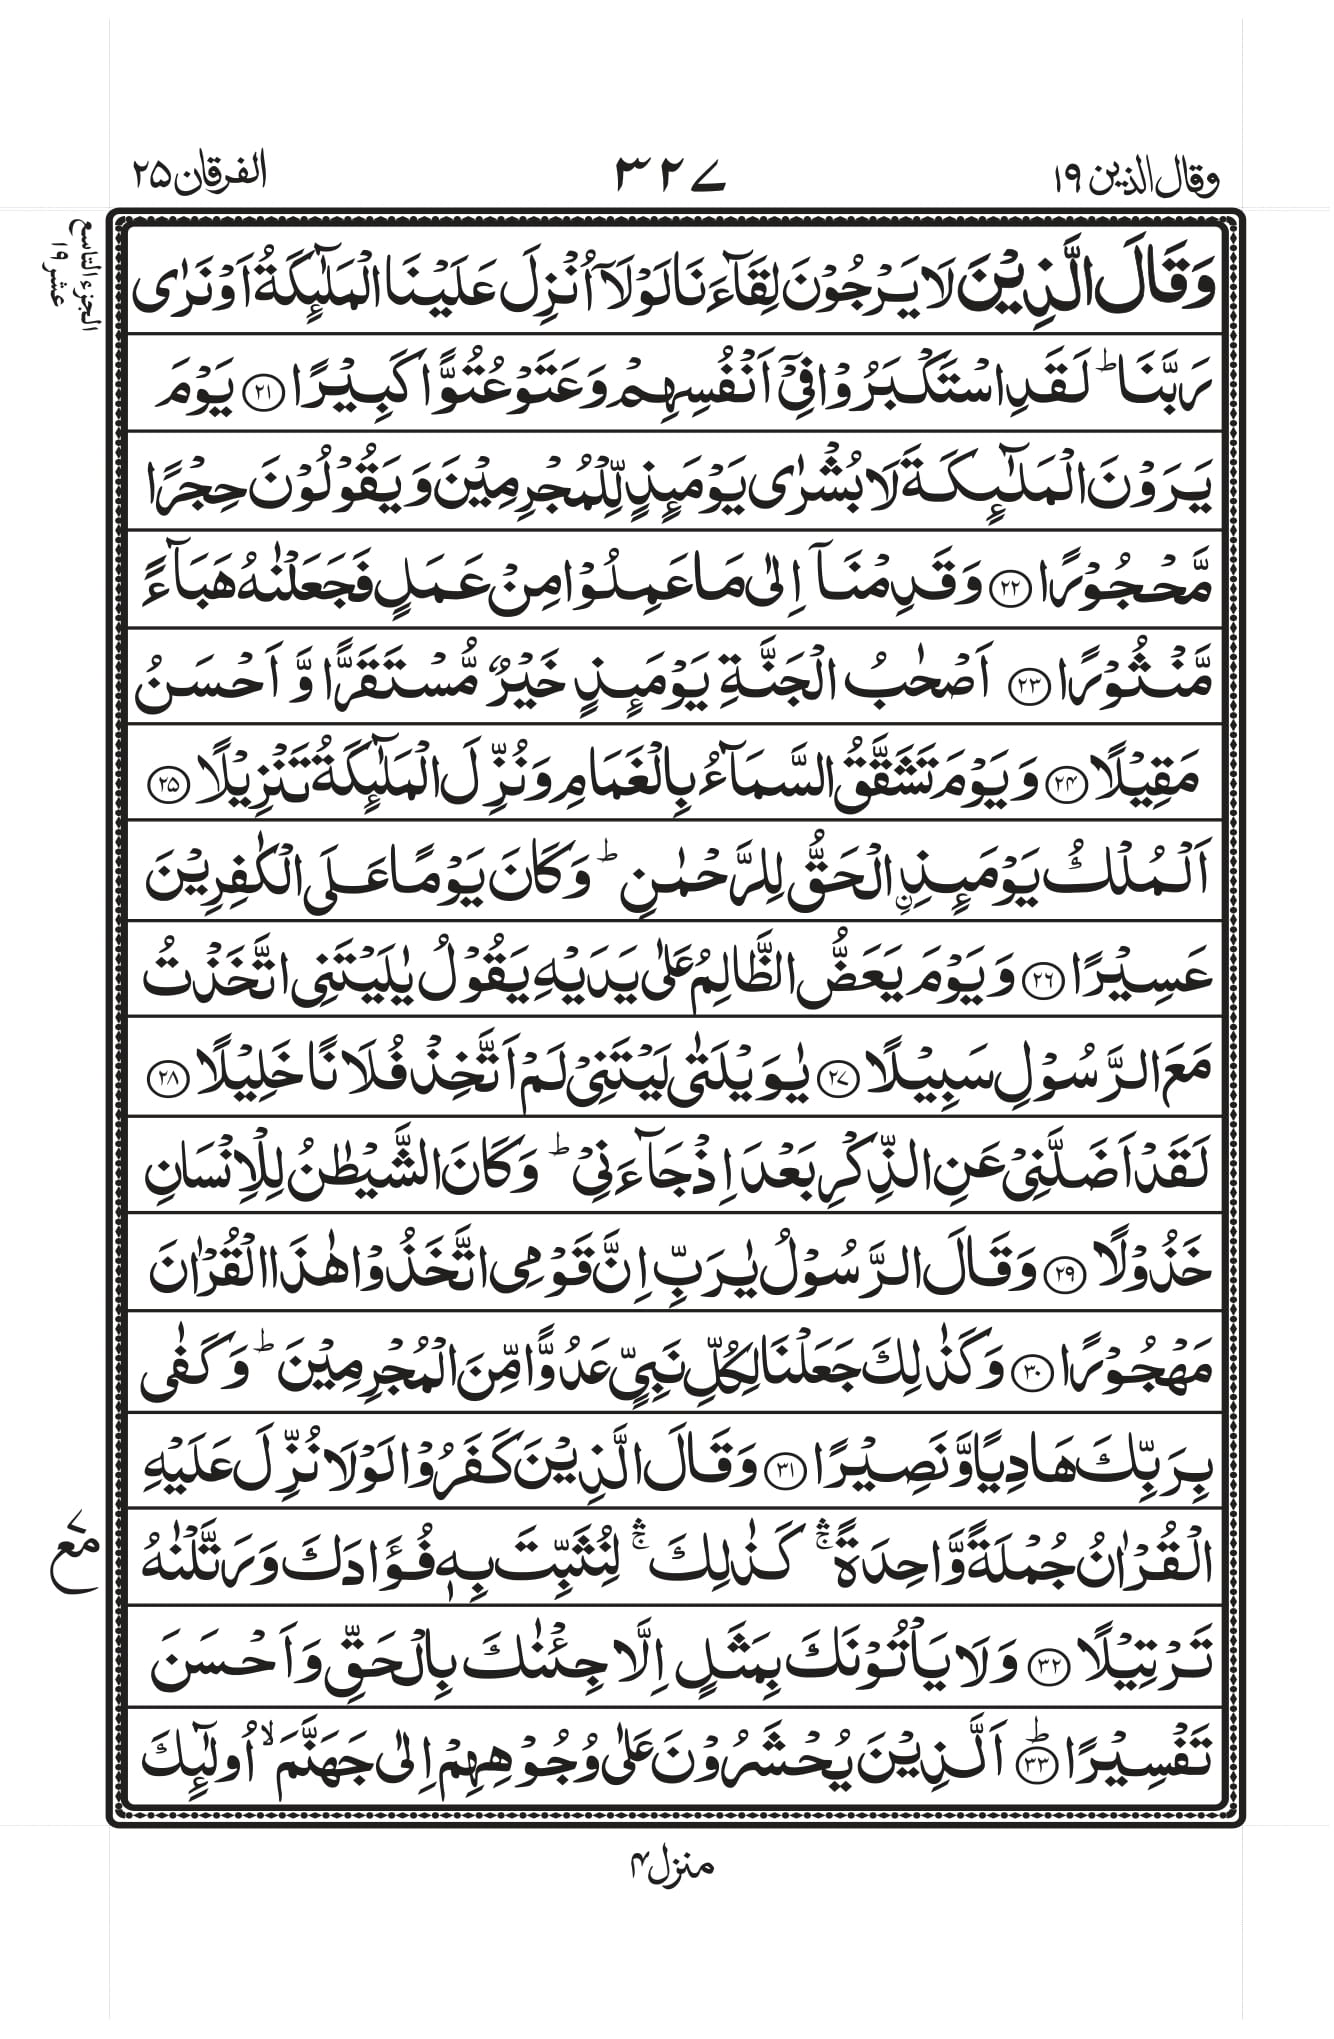 وقال الذين ۱۹
۳۲۷
الفرقان ۲۵
الجزء التاسع
عشر ۱۹
وَقَالَ الَّذِيْنَ لَا يَرْجُوْنَ لِقَآءَنَا لَوْلَاۤ اُنْزِلَ عَلَيْنَا الْمَلٰٓئِكَةُ اَوْ نَرٰى
رَبَّنَا ؕ لَقَدِ اسْتَكْبَرُوْا فِيْۤ اَنْفُسِهِمْ وَعَتَوْ عُتُوًّا كَبِيْرًا ۲۱ يَوْمَ
يَرَوْنَ الْمَلٰٓئِكَةَ لَا بُشْرٰى يَوْمَئِذٍ لِّلْمُجْرِمِيْنَ وَيَقُوْلُوْنَ حِجْرًا
مَّحْجُوْرًا ۲۲ وَقَدِمْنَاۤ اِلٰى مَا عَمِلُوْا مِنْ عَمَلٍ فَجَعَلْنٰهُ هَبَآءً
مَّنْثُوْرًا ۲۳ اَصْحٰبُ الْجَنَّةِ يَوْمَئِذٍ خَيْرٌ مُّسْتَقَرًّا وَّ اَحْسَنُ
مَقِيْلًا ۲۴ وَيَوْمَ تَشَقَّقُ السَّمَآءُ بِالْغَمَامِ وَنُزِّلَ الْمَلٰٓئِكَةُ تَنْزِيْلًا ۲۵
اَلْمُلْكُ يَوْمَئِذِ ِ۟الْحَقُّ لِلرَّحْمٰنِ ؕ وَكَانَ يَوْمًا عَلَى الْكٰفِرِيْنَ
عَسِيْرًا ۲۶ وَيَوْمَ يَعَضُّ الظَّالِمُ عَلٰى يَدَيْهِ يَقُوْلُ يٰلَيْتَنِى اتَّخَذْتُ
مَعَ الرَّسُوْلِ سَبِيْلًا ۲۷ يٰوَيْلَتٰى لَيْتَنِيْ لَمْ اَتَّخِذْ فُلَانًا خَلِيْلًا ۲۸
لَقَدْ اَضَلَّنِيْ عَنِ الذِّكْرِ بَعْدَ اِذْ جَآءَنِيْ ؕ وَكَانَ الشَّيْطٰنُ لِلْاِنْسَانِ
خَذُوْلًا ۲۹ وَقَالَ الرَّسُوْلُ يٰرَبِّ اِنَّ قَوْمِى اتَّخَذُوْا هٰذَا الْقُرْاٰنَ
مَهْجُوْرًا ۳۰ وَكَذٰلِكَ جَعَلْنَا لِكُلِّ نَبِيٍّ عَدُوًّا مِّنَ الْمُجْرِمِيْنَ ؕ وَكَفٰى
بِرَبِّكَ هَادِيًا وَّنَصِيْرًا ۳۱ وَقَالَ الَّذِيْنَ كَفَرُوْا لَوْلَا نُزِّلَ عَلَيْهِ
الْقُرْاٰنُ جُمْلَةً وَّاحِدَةً ۛۚ كَذٰلِكَ ۛۚ لِنُثَبِّتَ بِهٖ فُؤَادَكَ وَرَتَّلْنٰهُ
تَرْتِيْلًا ۳۲ وَلَا يَاْتُوْنَكَ بِمَثَلٍ اِلَّا جِئْنٰكَ بِالْحَقِّ وَاَحْسَنَ
تَفْسِيْرًا ؕ ۳۳ اَلَّذِيْنَ يُحْشَرُوْنَ عَلٰى وُجُوْهِهِمْ اِلٰى جَهَنَّمَ ۙ اُولٰٓئِكَ
مع ۷
منزل ۴